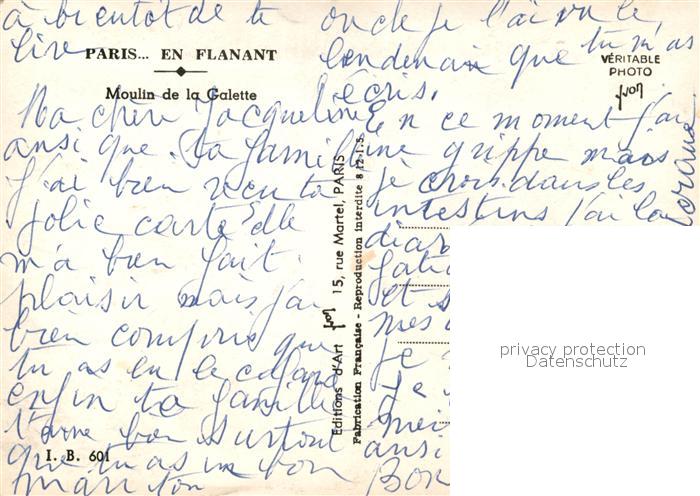 à bientôt de te
lire
PARIS... EN FLANANT
Moulin de la Galette
Ma chère Jacqueline
ansi que ta famille
j'ai bien recu ta
jolie carte Elle
m'a bien fait
plaisir mais j'ai
bien compris que
tu as eu le cafard
enfin ta famille
t'aime bien surtout
que tu as un bon
mari ton
I. B. 601
Editions d'Art yvon 15, rue Martel, PARIS
Fabrication Française - Reproduction interdite 8.12.1.5.
oncle je l'ai vu le
lendemain que tu m'as
écris.
VÉRITABLE
PHOTO
yvon
En ce moment j'ai
une grippe mais
je crois dans les
intestins j'ai la
diar
fati
et s
mes
je
Je
mei
ansi
Bon
privacy protection
Datenschutz